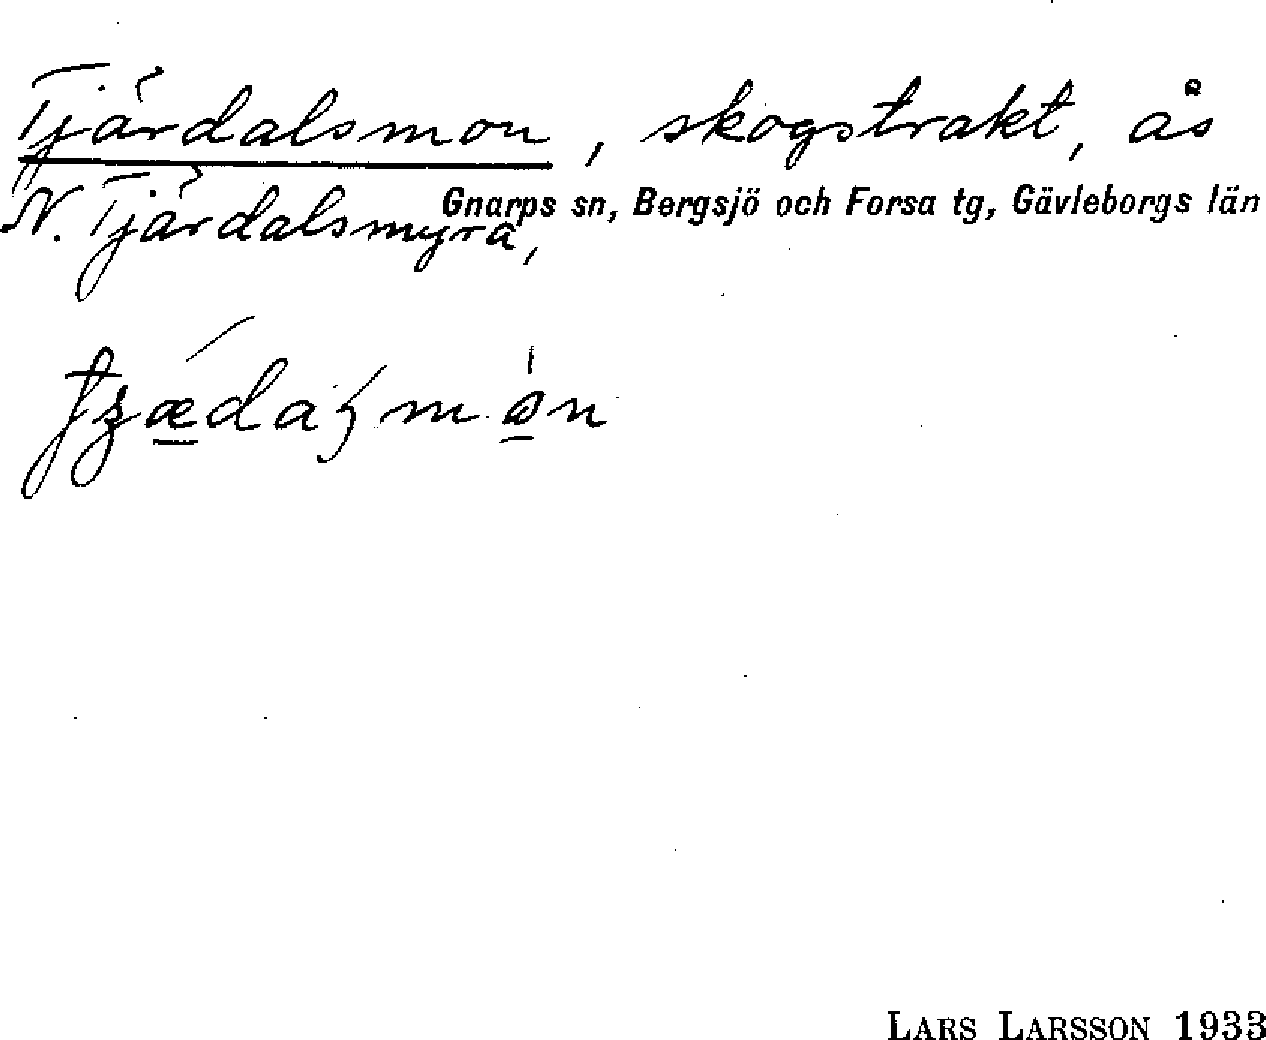 Tjärdalsmon, skogstrakt, ås
Gnarps sn, Bergsjö och Forsa tg, Gävleborgs län
N. Tjärdalsmyra,
LARS LARSSON 1933